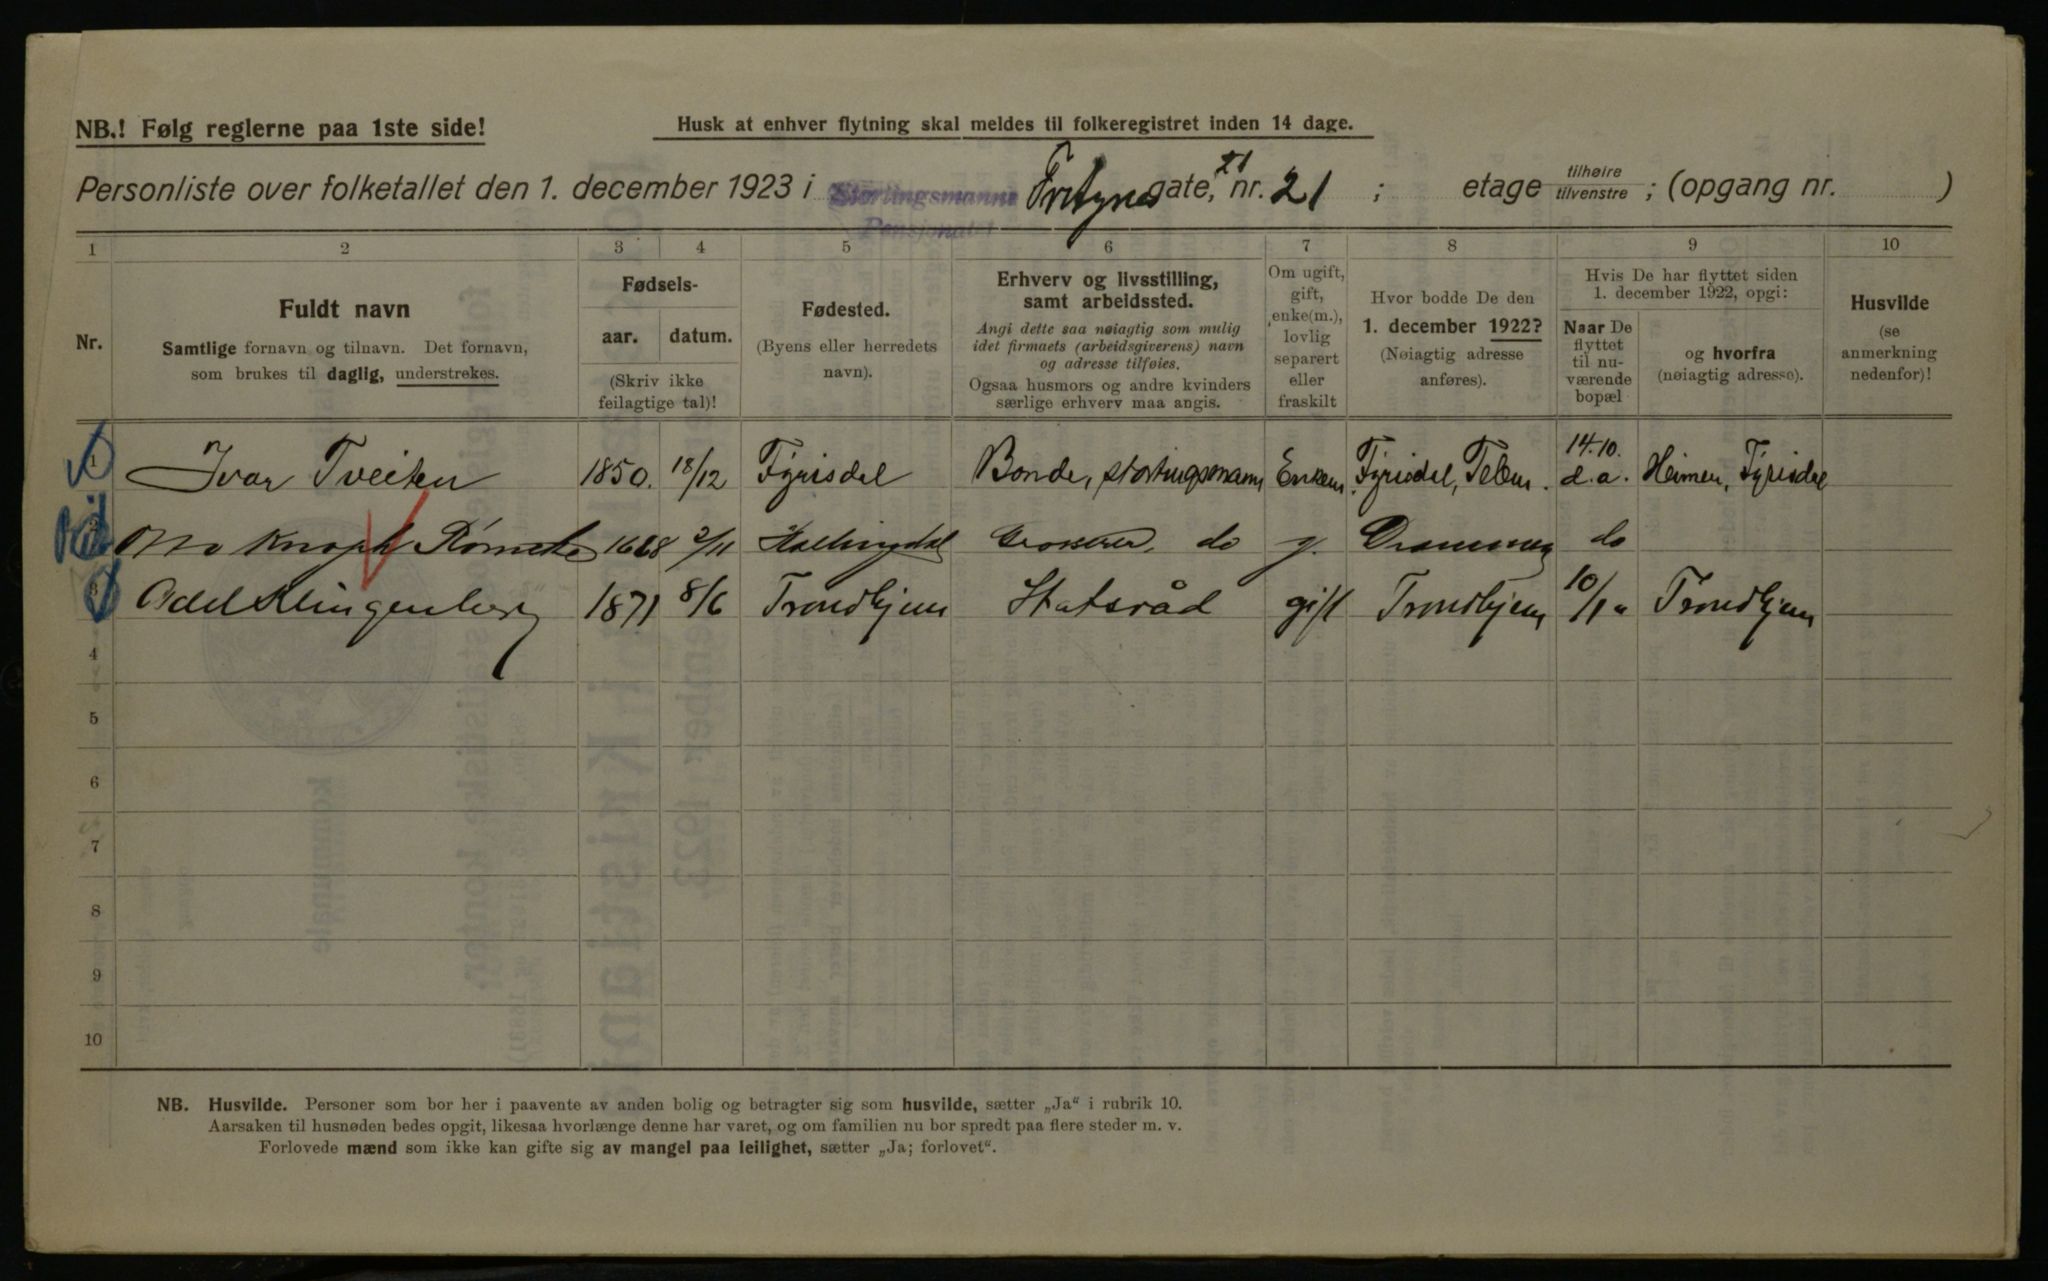 NB.! Følg reglerne paa 1ste side!
Husk at enhver flytning skal meldes til folkeregistret inden 14 dage.
Personliste over folketallet den 1. december 1923 i Stortingsmanns Pensjonatet gate, nr. 21 ; etage tilhøire tilvenstre ; (opgang nr. )
1 2 3 4 5 6 7 8 9 10
Nr.
Fuldt navn
Samtlige fornavn og tilnavn. Det fornavn,
som brukes til daglig, understrekes.
Fødsels-
aar. datum.
(Skriv ikke
feilagtige tal)!
Fødested.
(Byens eller herredets
navn).
Erhverv og livsstilling,
samt arbeidssted.
Angi dette saa nøiagtig som mulig
idet firmaets (arbeidsgiverens) navn
og adresse tilføies.
Ogsaa husmors og andre kvinders
særlige erhverv maa angis.
Om ugift,
gift,
enke(m.),
lovlig
separert
eller
fraskilt
Hvor bodde De den
1. december 1922?
(Nøiagtig adresse
anføres).
Hvis De har flyttet siden
1. december 1922, opgi:
Naar De
flyttet
til nu-
værende
bopæl
og hvorfra
(nøiagtig adresse).
Husvilde
(se
anmerkning
nedenfor)!
1 Ivar Tveiten 1850. 18/12 Fyrisdal Bonde, stortingsmann Enkem. Fyrisdal, Telem. 14.10. d.a. Heimen, Fyrisdal
2 Knoph 2/11 Hallingdal do g. Drammen do
3 Odd Klingenberg 1871 8/6 Trondhjem Statsråd gift Trondhjem Trondhjem
4
5
6
7
8
9
10
NB. Husvilde. Personer som bor her i paavente av anden bolig og betragter sig som husvilde, sætter „Ja“ i rubrik 10.
Aarsaken til husnøden bedes opgit, likesaa hvorlænge denne har varet, og om familien nu bor spredt paa flere steder m. v.
Forlovede mænd som ikke kan gifte sig av mangel paa leilighet, sætter „Ja; forlovet“.